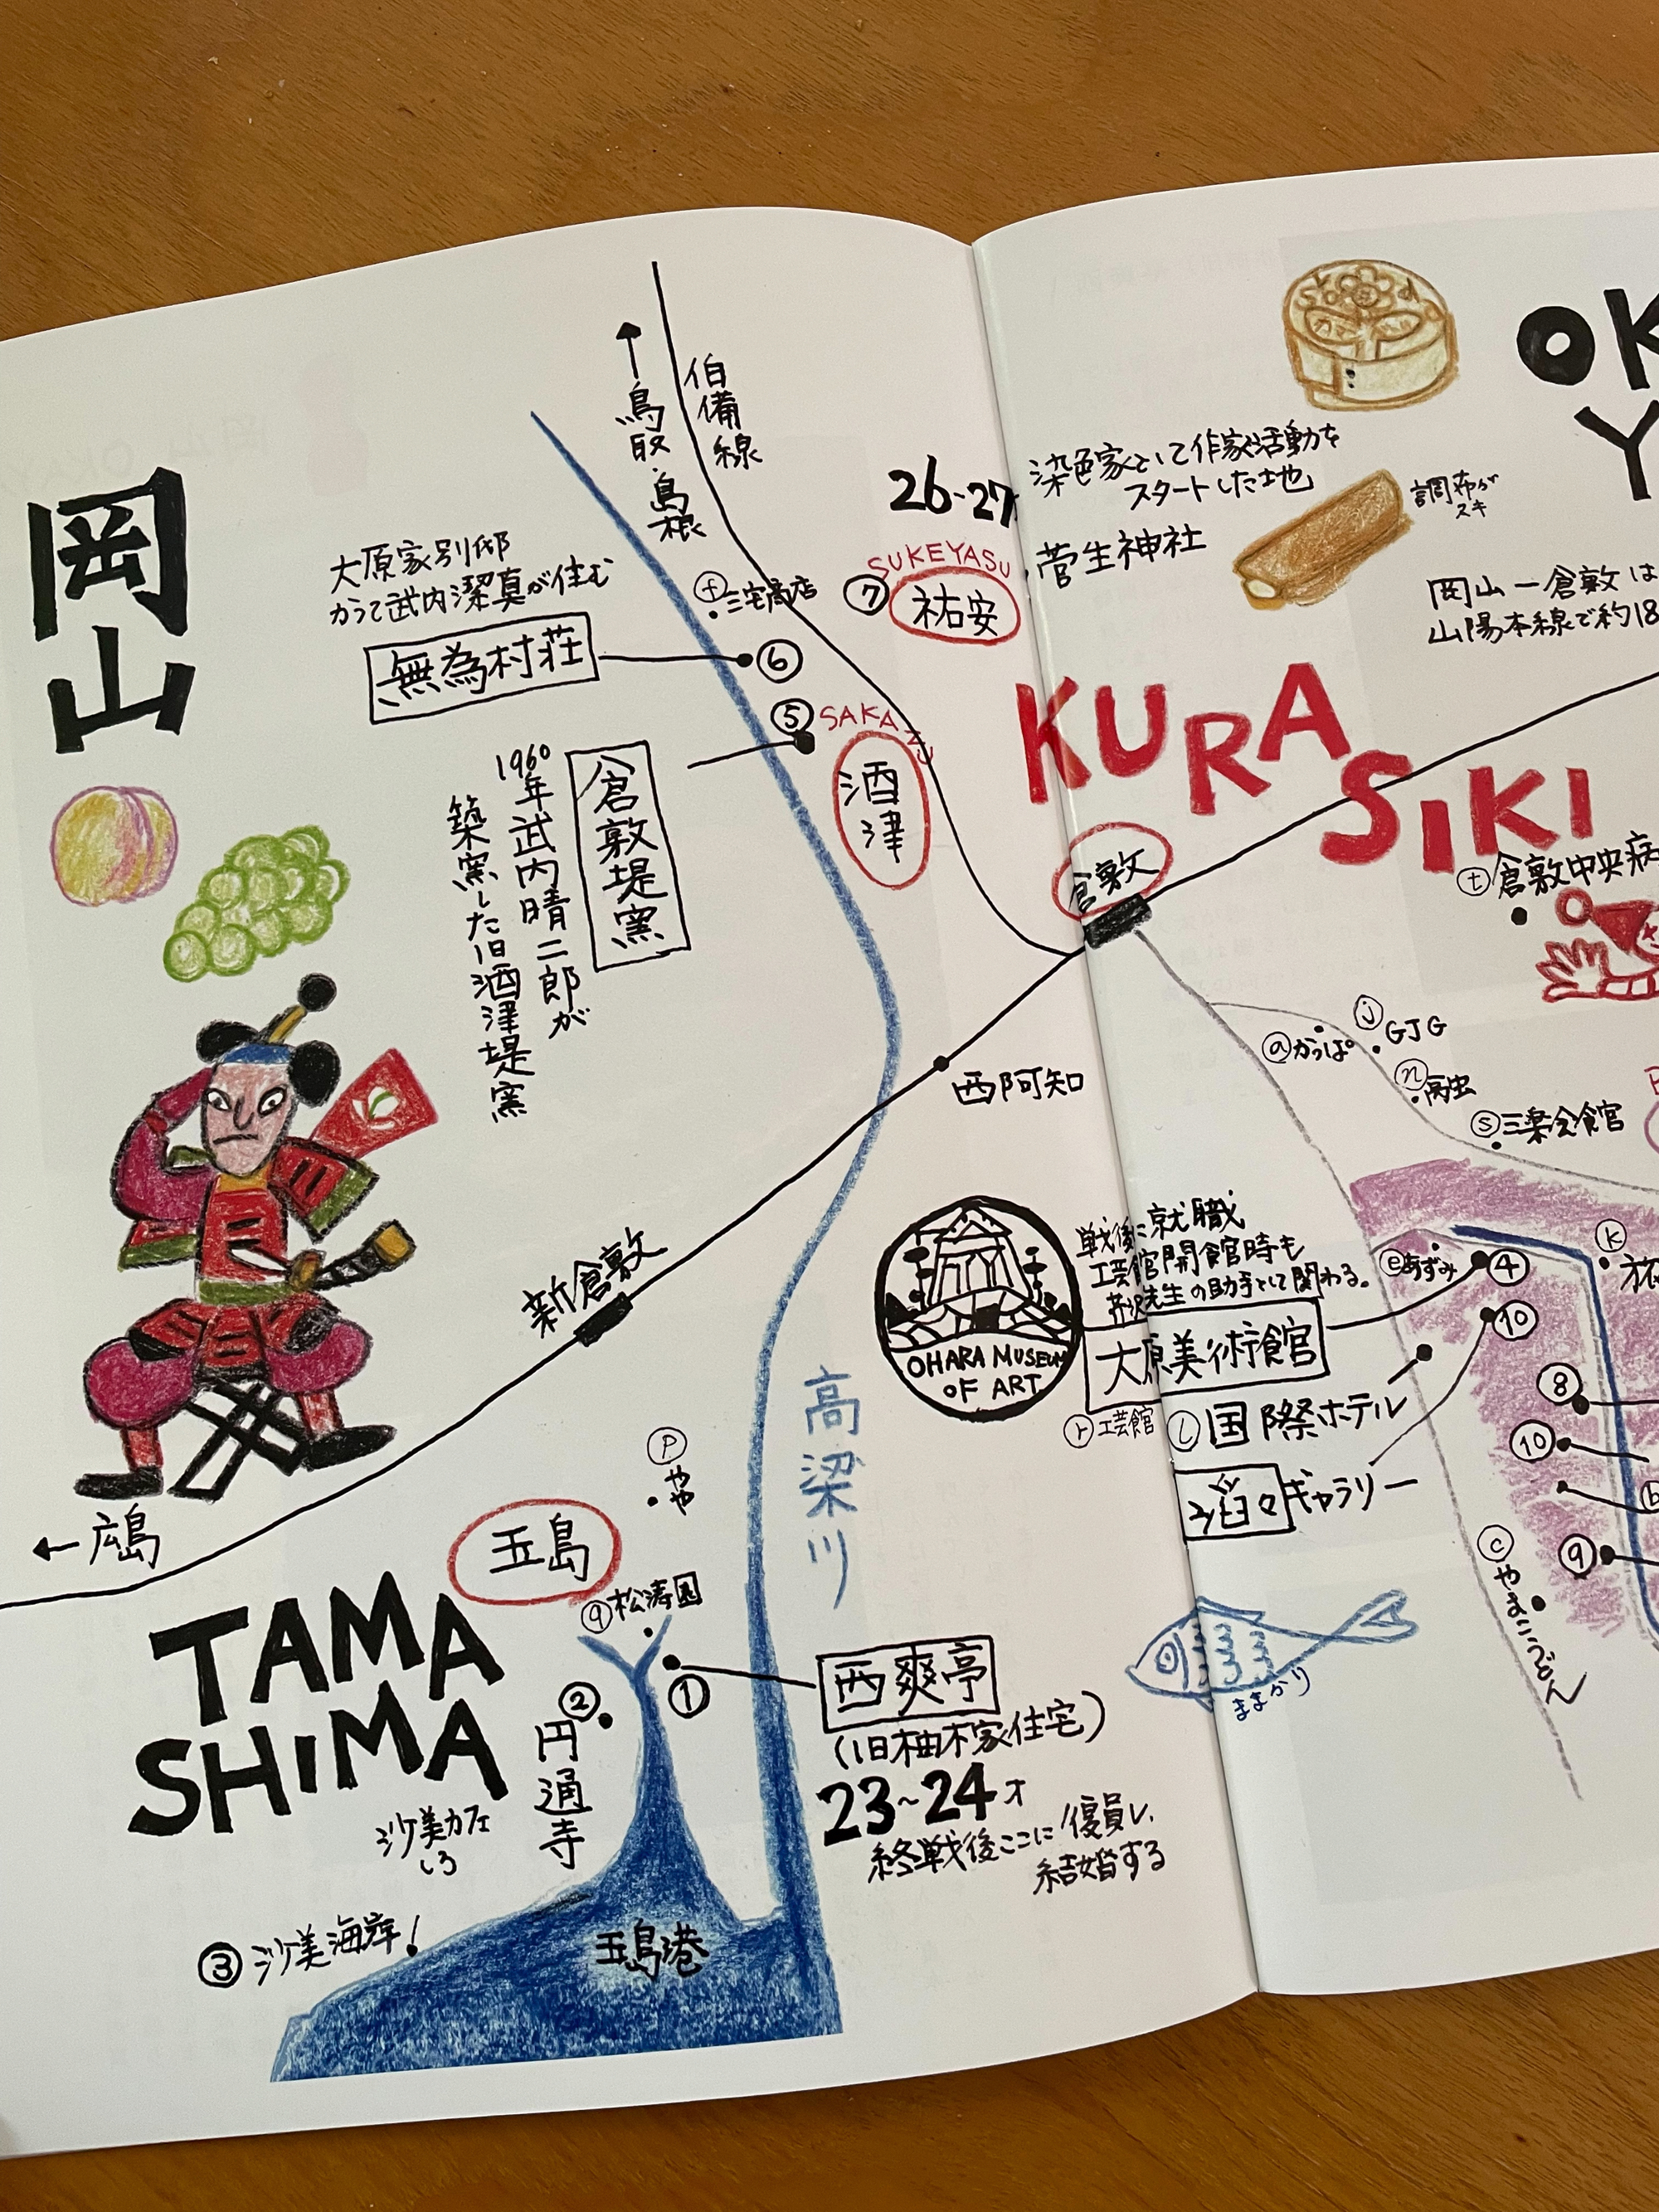 岡山
↑鳥取・島根
伯備線
大原家別邸
かつて武内潔真が住む
無為村荘
⑥
ⓕ三宅商店
⑤
SAKAZU
酒津
倉敷堤窯
1960年武内晴二郎が
築窯した旧酒津堤窯
26~27
染色家として作家活動を
スタートした地
SUKEYASU
⑦
祐安
菅生神社
調布が
スキ
OK
Y
岡山ー倉敷は
山陽本線で約18
KURASIKI
倉敷
ⓣ倉敷中央病
西阿知
新倉敷
←広島
ⓐかっぱ
ⓙGJG
ⓝ
ⓢ三楽会食官
戦後に就職
工芸館開館時も
芹沢先生の助手として関わる。
大原美術館
OHARA MUSEUM
OF ART
ⓡ工芸館
ⓛ国際ホテル
滔々ギャラリー
ⓔあずみ
④
⑩
ⓚ
旅
⑧
⑩
ⓑ
⑨
ⓒやまこうどん
高梁川
ⓟやや
玉島
TAMA
SHIMA
ⓠ松涛園
①
西爽亭
(旧柚木家住宅)
23~24才
終戦後ここに復員し、
結婚する
②
円通寺
沙美カフェ
しろ
③沙美海岸!
玉島港
ままかり